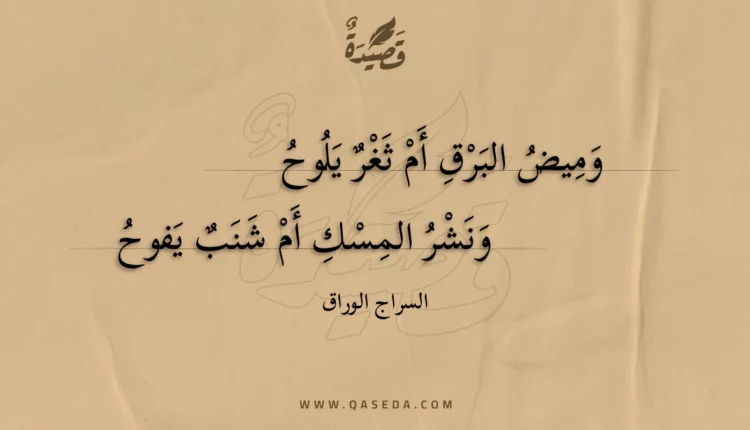 قَصِيْدَةٌ
وَمِيضُ البَرْقِ أَمْ ثَغْرٌ يَلُوحُ
وَنَشْرُ المِسْكِ أَمْ شَنَبٌ يَفوحُ
السراج الوراق
WWW.QASEDA.COM